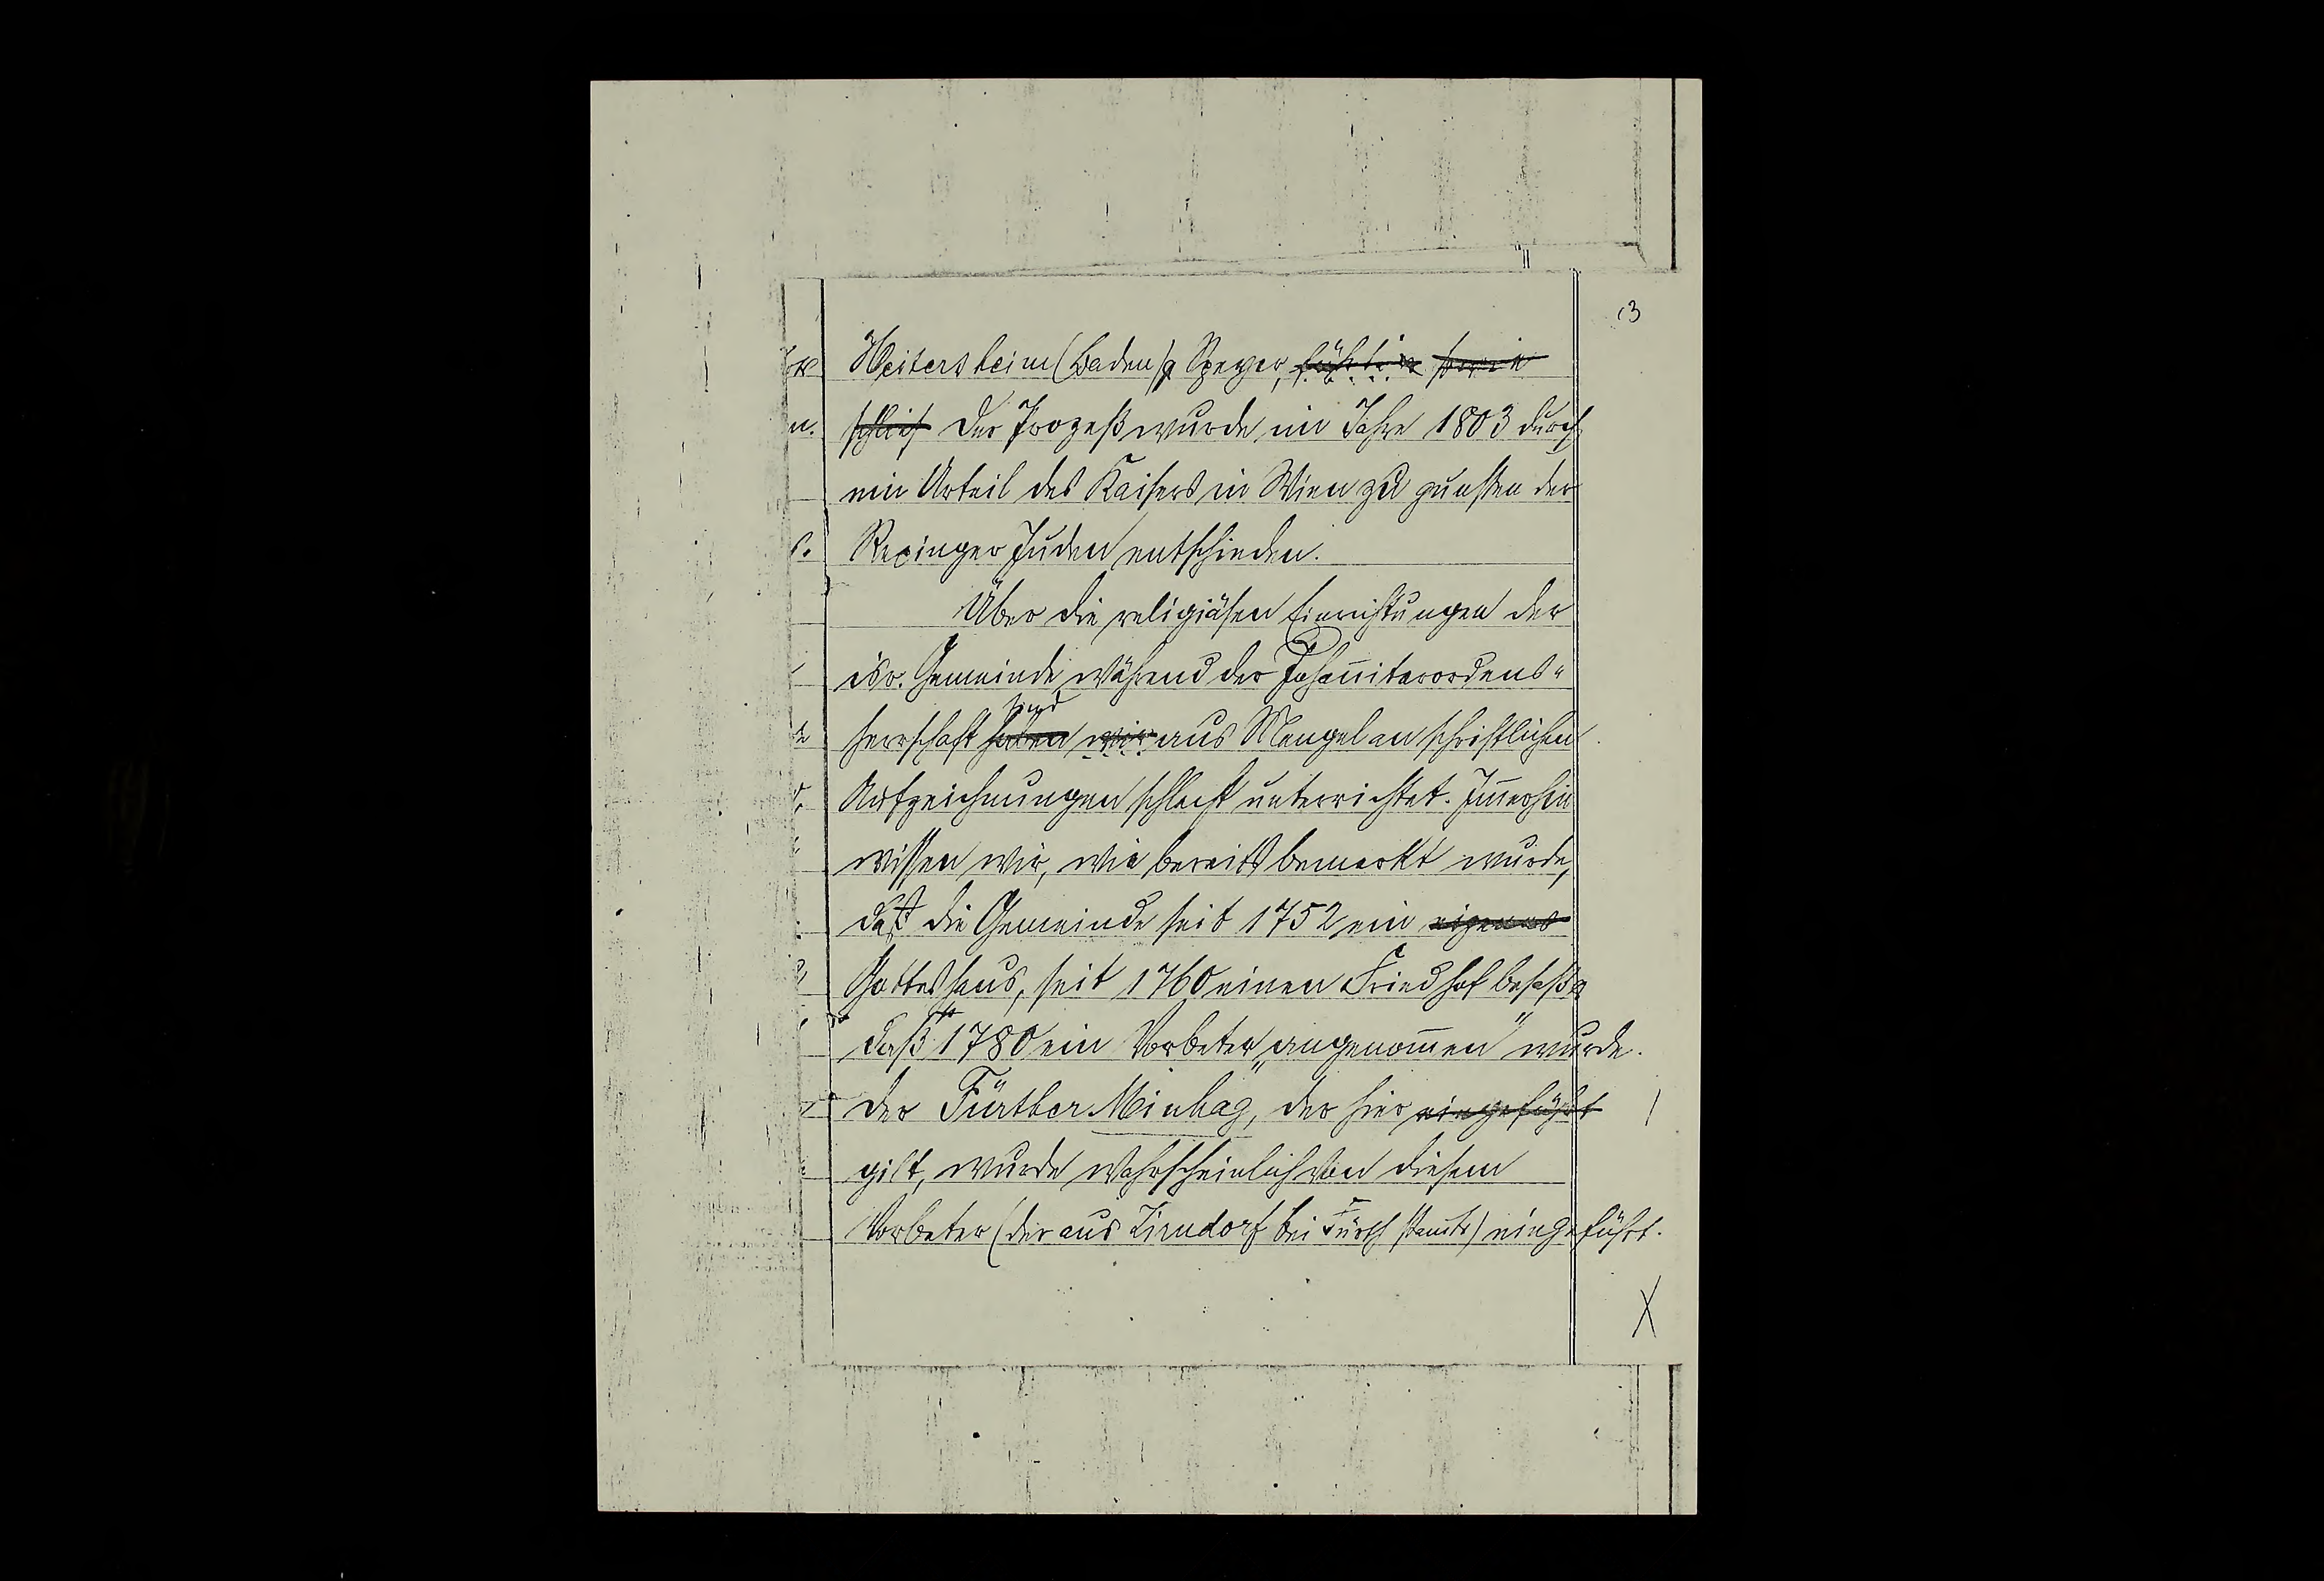 13
Heitersheim (Baden) Speyer, führten sowie
schlief Der Prozeß wurde im Jahre 1803 durch
ein Urteil des Kaisers in Wien zu gunsten der
Rexinger Juden entschieden.
Über die religiösen Einrichtungen der
isr. Gemeinde während der Johan̄iterordens-
sind
herrschaft haben wir aus Mangel an schriftlichen
Aufzeichnungen schlecht unterrichtet. Im̄erhin
wissen wir, wie bereits bemerkt wurde,
daß die Gemeinde seit 1752 ein eigenes
Gotteshaus, seit 1760 einen Friedhof besaß
daß 1780 ein Vorbeter „angenom̄en" wurde.
Der Fürther Minhag, der hier eingeführt
gilt, wurde wahrscheinlich von diesem
Vorbeter (der aus Zirndorf bei Fürth stam̄te) eingeführt.
X